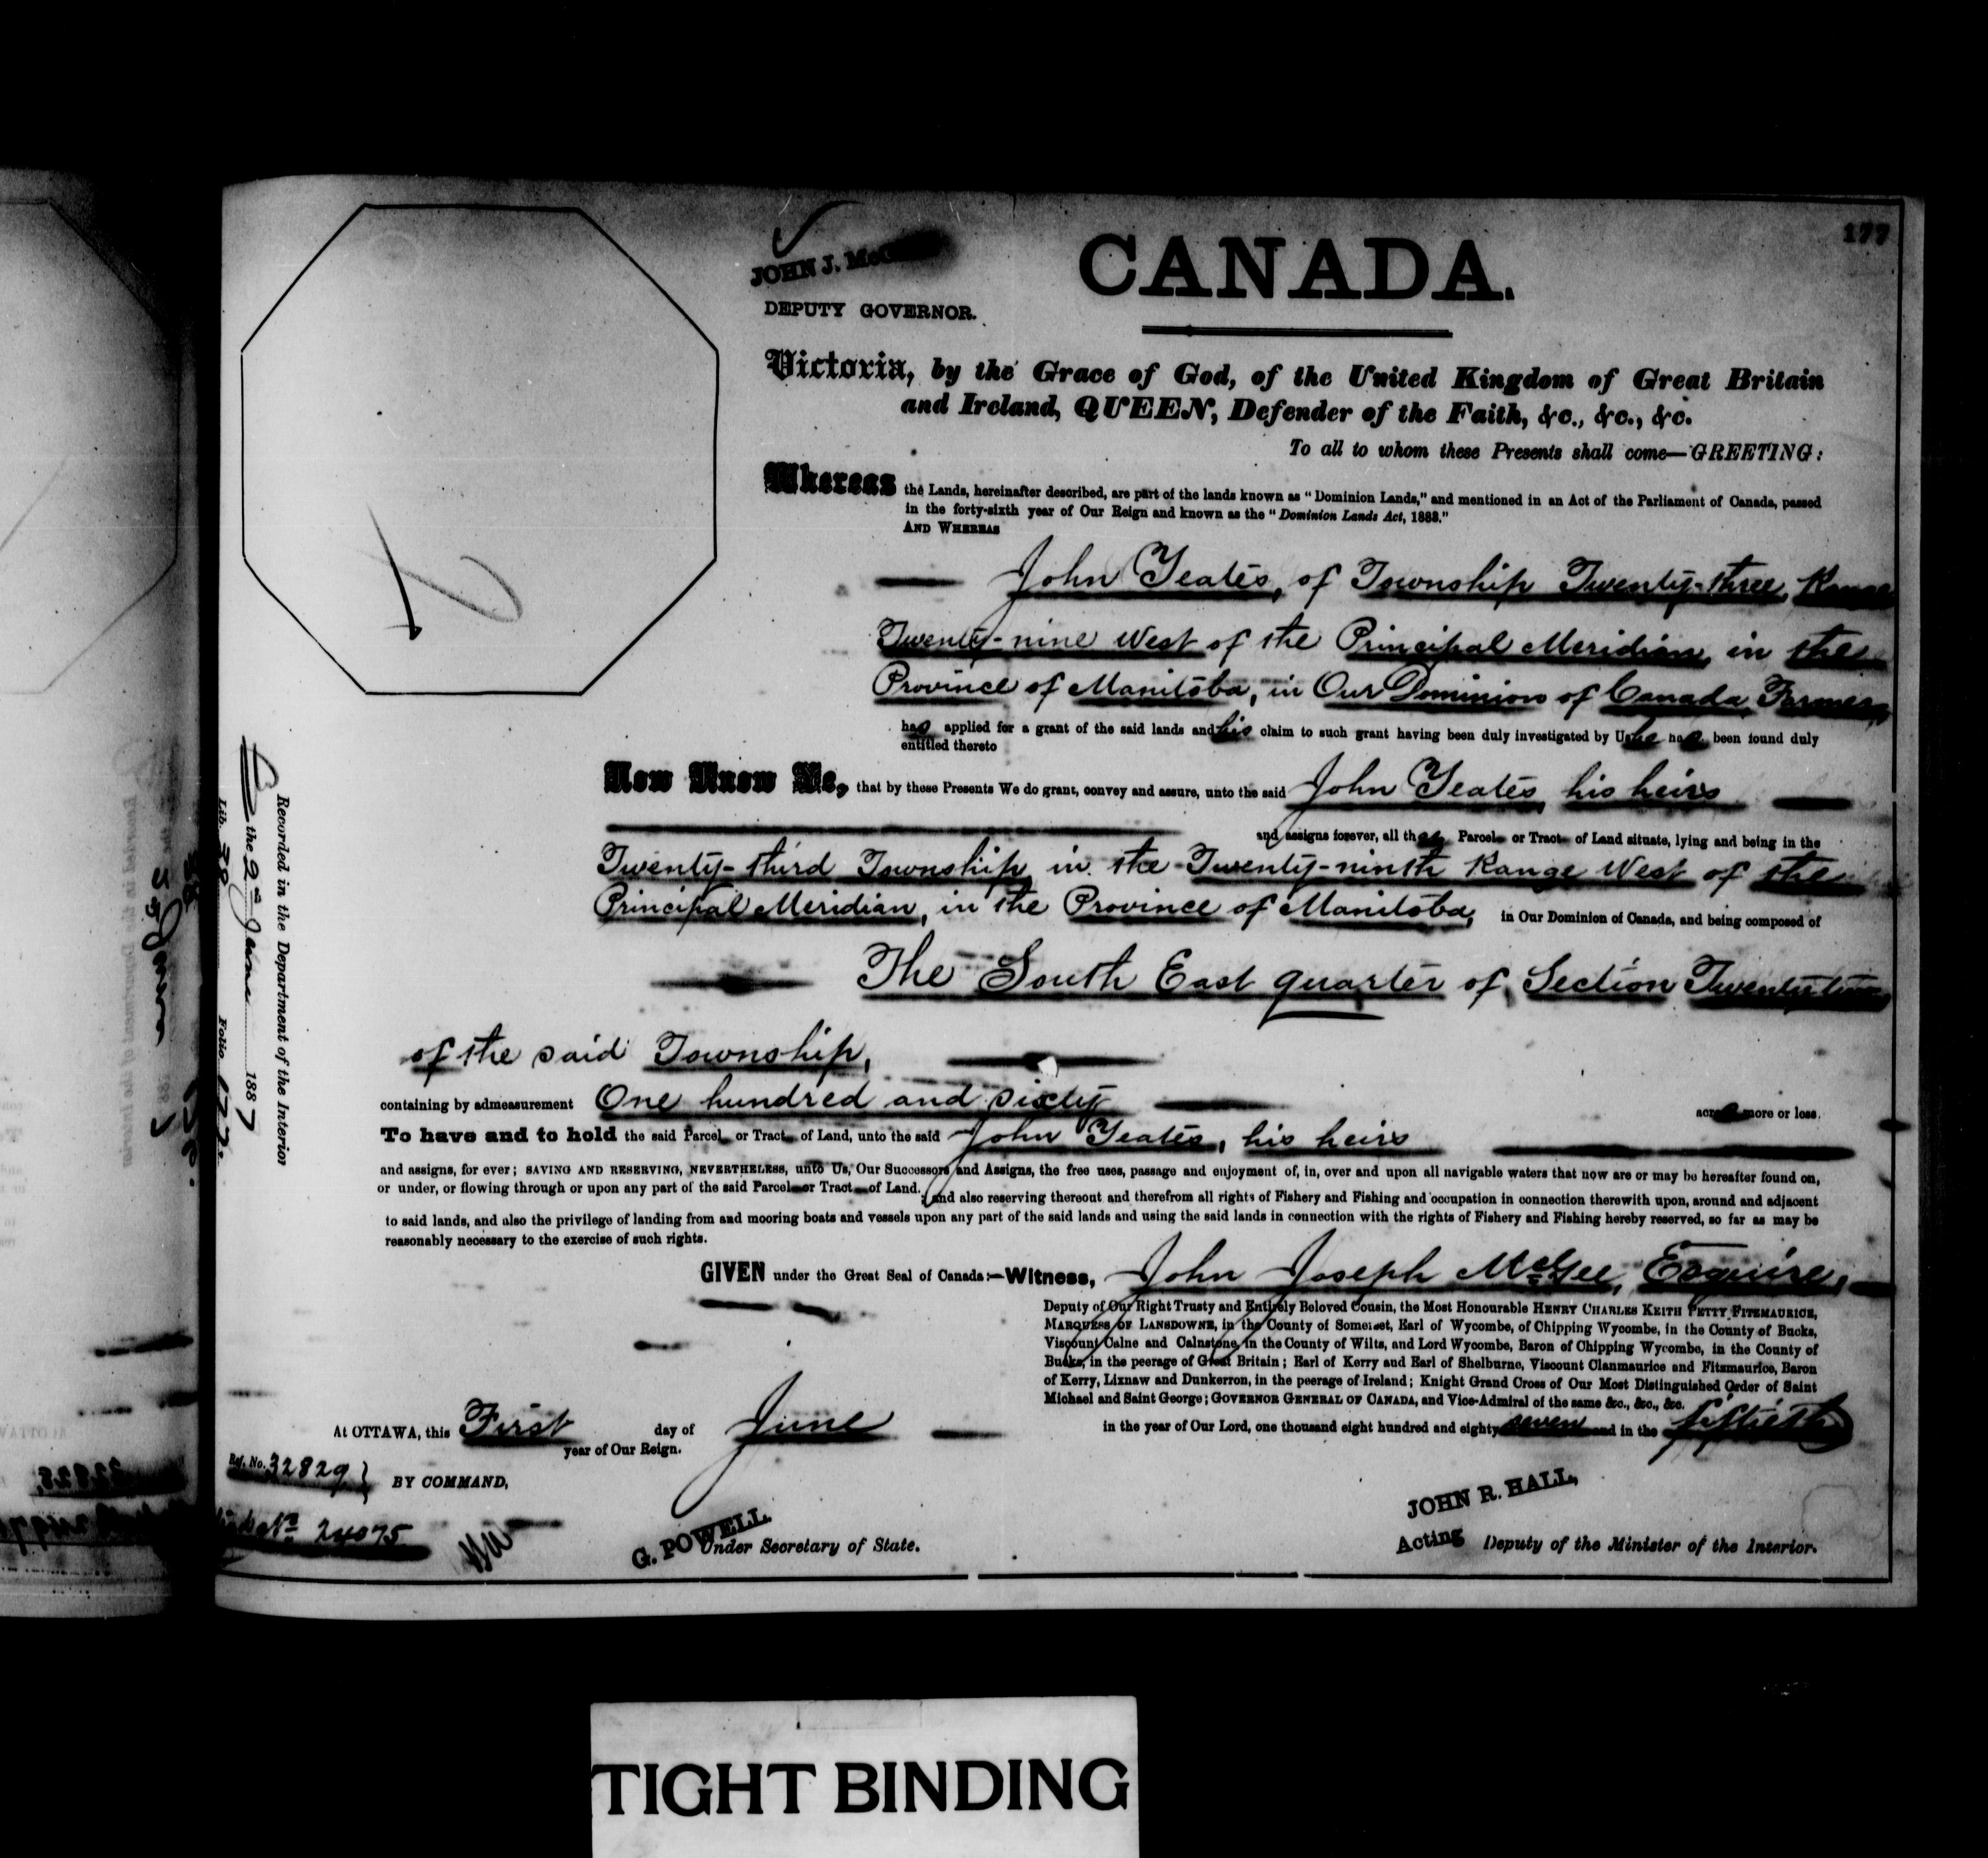 177
JOHN J. McG
DEPUTY GOVERNOR.
CANADA.
Victoria, by the Grace of God, of the United Kingdom of Great Britain
and Ireland, QUEEN, Defender of the Faith, &c., &c., &c.
To all to whom these Presents shall come—GREETING:
Whereas the Lands, hereinafter described, are part of the lands known as "Dominion Lands," and mentioned in an Act of the Parliament of Canada, passed
in the forty-sixth year of Our Reign and known as the "Dominion Lands Act, 1883."
AND WHEREAS
John Yeates, of Township Twenty-three, Range
Twenty-nine West of the Principal Meridian, in the
Province of Manitoba, in Our Dominion of Canada, Farmer,
has applied for a grant of the said lands and his claim to such grant having been duly investigated by Us he has been found duly
entitled thereto
Now Know Ye, that by these Presents We do grant, convey and assure, unto the said John Yeates, his heirs
and assigns forever, all that Parcel or Tract of Land situate, lying and being in the
Twenty-third Township, in the Twenty-ninth Range West of the
Principal Meridian, in the Province of Manitoba, in Our Dominion of Canada, and being composed of
The South East quarter of Section Twenty two
of the said Township,
containing by admeasurement One hundred and sixty acres more or less.
To have and to hold the said Parcel or Tract of Land, unto the said John Yeates, his heirs
and assigns, for ever; SAVING AND RESERVING, NEVERTHELESS, unto Us, Our Successors and Assigns, the free uses, passage and enjoyment of, in, over and upon all navigable waters that now are or may be hereafter found on,
or under, or flowing through or upon any part of the said Parcel or Tract of Land.; and also reserving thereout and therefrom all rights of Fishery and Fishing and occupation in connection therewith upon, around and adjacent
to said lands, and also the privilege of landing from and mooring boats and vessels upon any part of the said lands and using the said lands in connection with the rights of Fishery and Fishing hereby reserved, so far as may be
reasonably necessary to the exercise of such rights.
GIVEN under the Great Seal of Canada:—Witness, John Joseph McGee, Esquire,
Deputy of Our Right Trusty and Entirely Beloved Cousin, the Most Honourable HENRY CHARLES KEITH PETTY FITZMAURICE,
MARQUESS OF LANSDOWNE, in the County of Somerset, Earl of Wycombe, of Chipping Wycombe, in the County of Bucks,
Viscount Calne and Calnstone, in the County of Wilts, and Lord Wycombe, Baron of Chipping Wycombe, in the County of
Bucks, in the peerage of Great Britain; Earl of Kerry and Earl of Shelburne, Viscount Clanmaurice and Fitzmaurice, Baron
of Kerry, Lixnaw and Dunkerron, in the peerage of Ireland; Knight Grand Cross of Our Most Distinguished Order of Saint
Michael and Saint George; GOVERNOR GENERAL OF CANADA, and Vice-Admiral of the same &c., &c., &c.
At OTTAWA, this First day of June in the year of Our Lord, one thousand eight hundred and eighty seven and in the fiftieth
year of Our Reign.
Ref. No. 32829
BY COMMAND,
No 24075
G. POWELL.
Under Secretary of State.
JOHN R. HALL,
Acting Deputy of the Minister of the Interior.
Recorded in the Department of the Interior
the 2nd June 1887
Lib. 38 Folio 177.
TIGHT BINDING